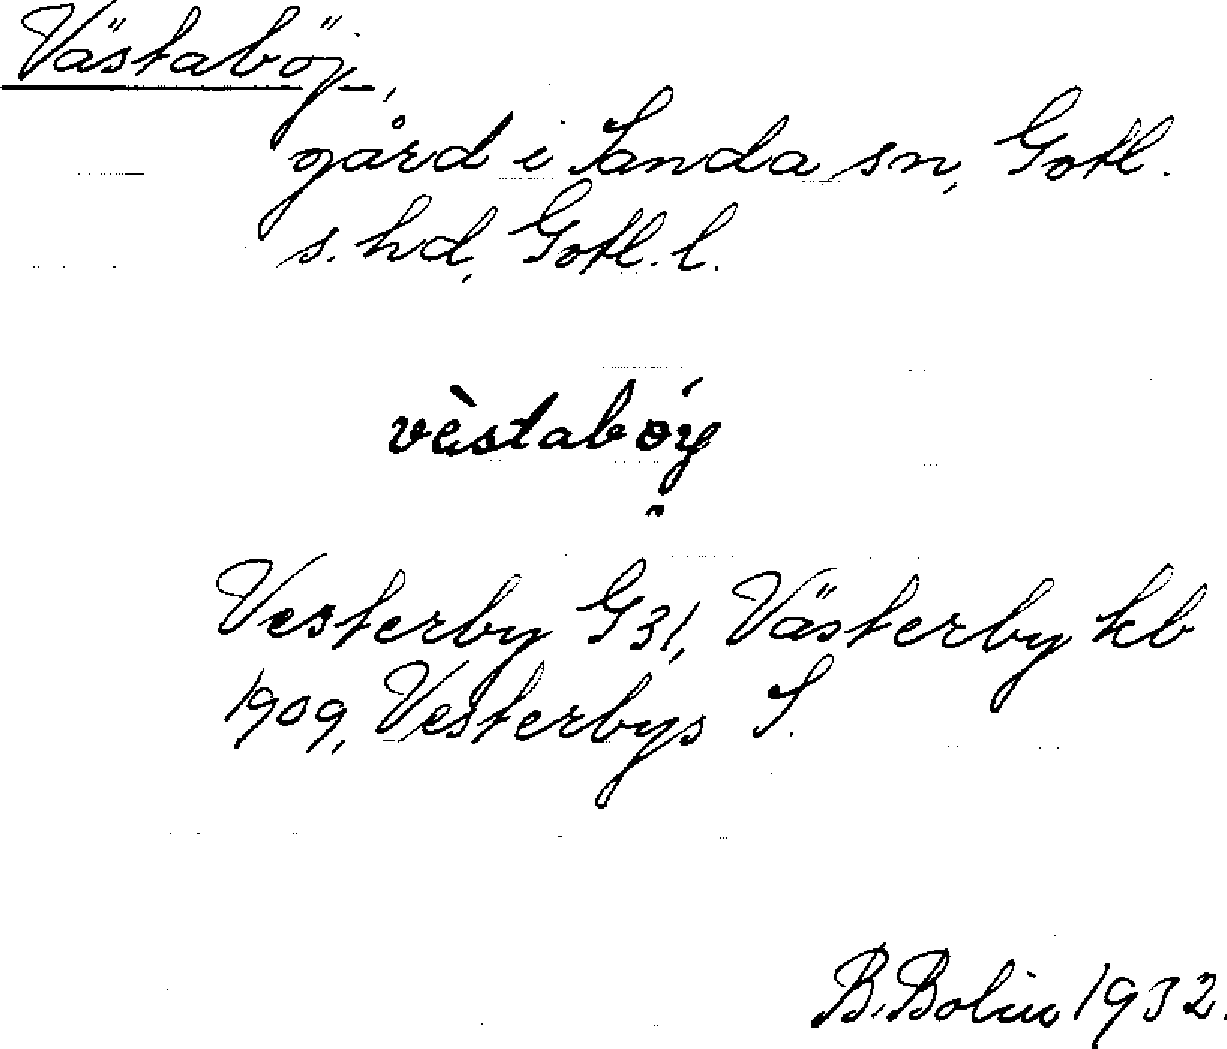 Västaböj,
gård i Sanda sn, Gotl.
s. hd, Gotl. l.
vèstabóy
Vesterby G31, Västerby kb
1909, Vesterbys S.
B. Bolin 1932.